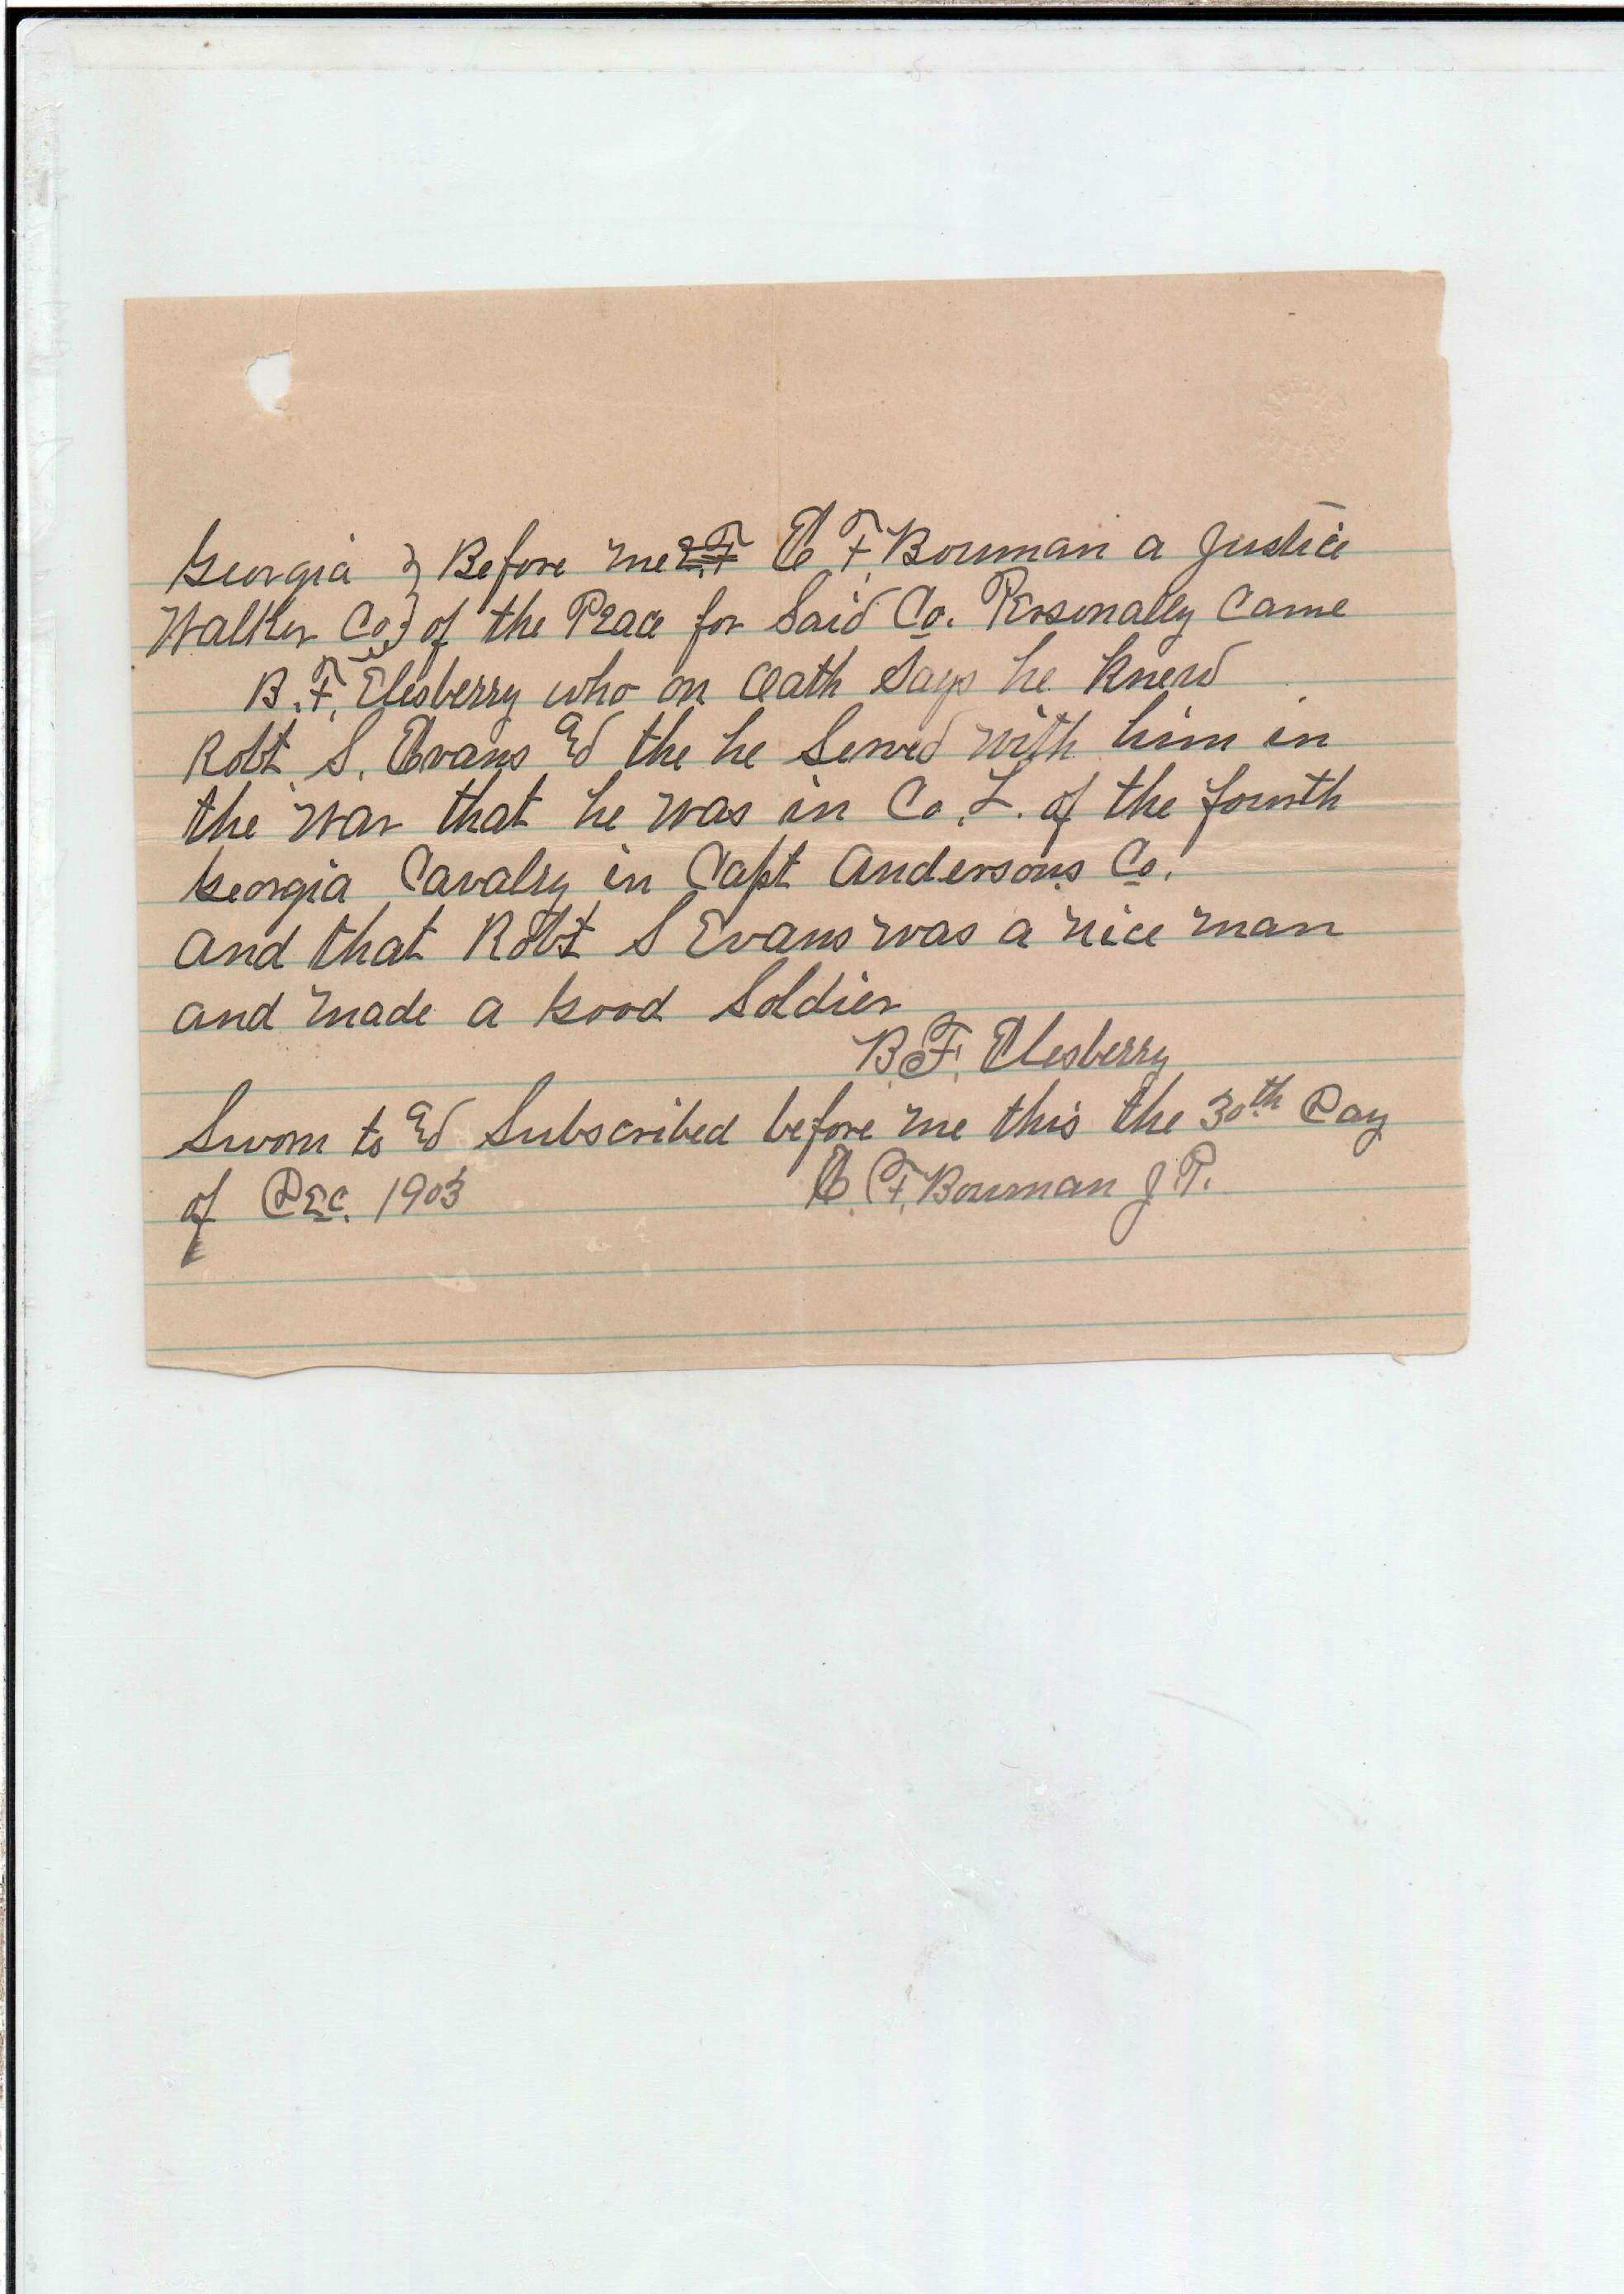 Georgia } Before me E. F. E F. Bowman a Justice
Walker Co } of the Peace for Said Co. Personally Came
B. F. Elesberry who on Oath Says he Knew
Robt S. Evans & the he Served with him in
the War that he was in Co. L. of the fourth
Georgia Cavalry in Capt Andersons Co.
and that Robt S Evans was a nice man
and made a Good Soldier
B. F. Elesberry
Sworn to & Subscribed before me this the 30th Day
of Dec. 1903 E. F. Bowman J. P.